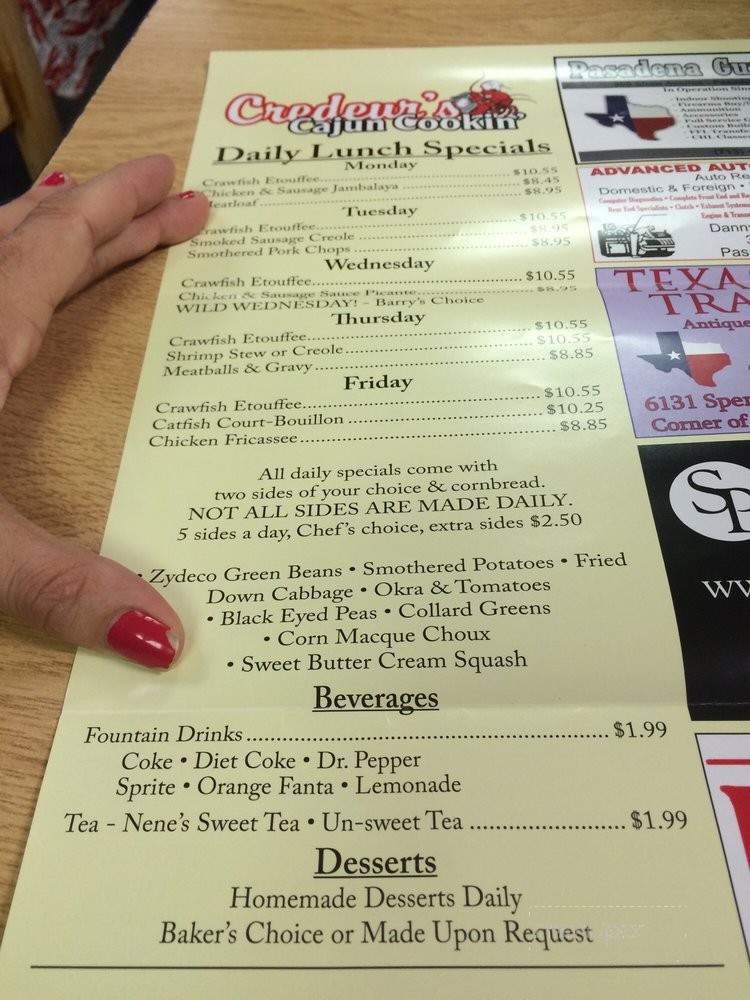 Credeur's
Cajun Cookin'
Daily Lunch Specials
Monday
Crawfish Etouffee.......... $10.55
Chicken & Sausage Jambalaya .......... $8.45
Meatloaf .......... $8.95
Tuesday
Crawfish Etouffee.......... $10.55
Smoked Sausage Creole .......... $8.95
Smothered Pork Chops .......... $8.95
Wednesday
Crawfish Etouffee.......... $10.55
Chicken & Sausage Sauce Picante.......... $8.95
WILD WEDNESDAY! - Barry's Choice
Thursday
Crawfish Etouffee.......... $10.55
Shrimp Stew or Creole.......... $10.55
Meatballs & Gravy.......... $8.85
Friday
Crawfish Etouffee.......... $10.55
Catfish Court-Bouillon .......... $10.25
Chicken Fricassee.......... $8.85
All daily specials come with
two sides of your choice & cornbread.
NOT ALL SIDES ARE MADE DAILY.
5 sides a day, Chef's choice, extra sides $2.50
• Zydeco Green Beans • Smothered Potatoes • Fried
Down Cabbage • Okra & Tomatoes
• Black Eyed Peas • Collard Greens
• Corn Macque Choux
• Sweet Butter Cream Squash
Beverages
Fountain Drinks.......... $1.99
Coke • Diet Coke • Dr. Pepper
Sprite • Orange Fanta • Lemonade
Tea - Nene's Sweet Tea • Un-sweet Tea .......... $1.99
Desserts
Homemade Desserts Daily
Baker's Choice or Made Upon Request
Pasadena Gu
In Operation Sin
- Indoor Shooting
- Firearms Buy/
- Ammunition
Accessories
- Full Service G
- Custom Build
- FFL Transf
- CHL Classes
ADVANCED AUT
Auto Re
Domestic & Foreign •
Computer Diagnostics • Complete Front End and Re
Rear End Specialists • Clutch • Exhaust Systems
Engine & Trans
Dann
Pas
TEXA
TRA
Antique
6131 Spen
Corner of
SP
ww